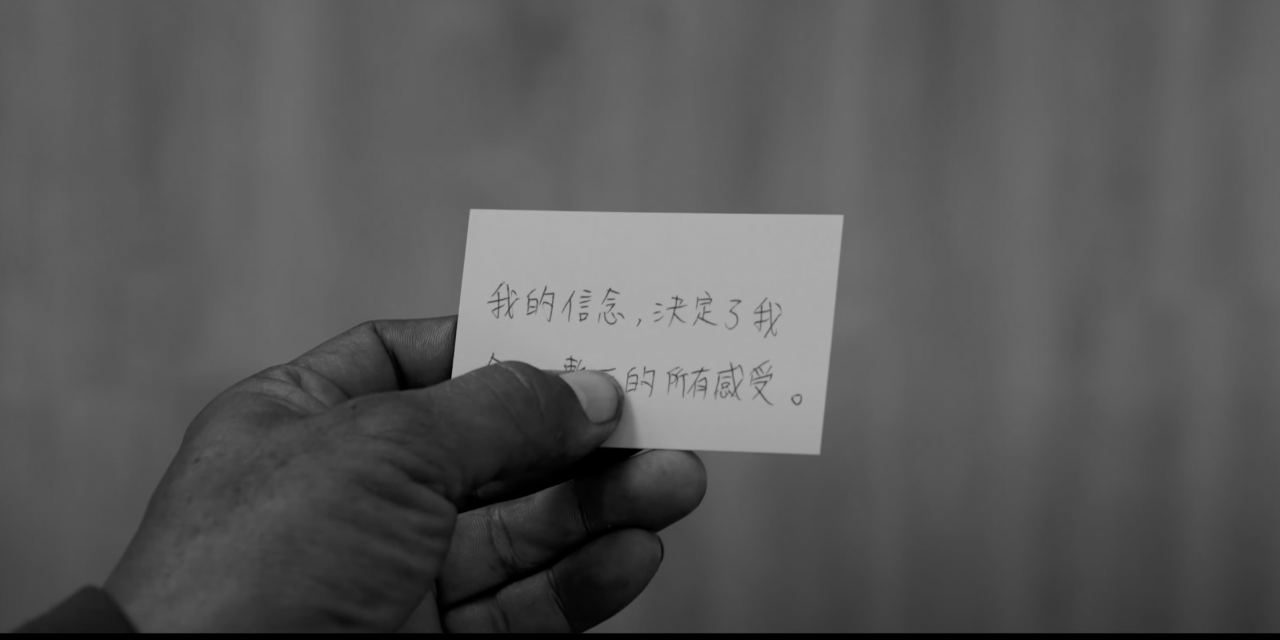 我的信念,決定了我
的所有感受。